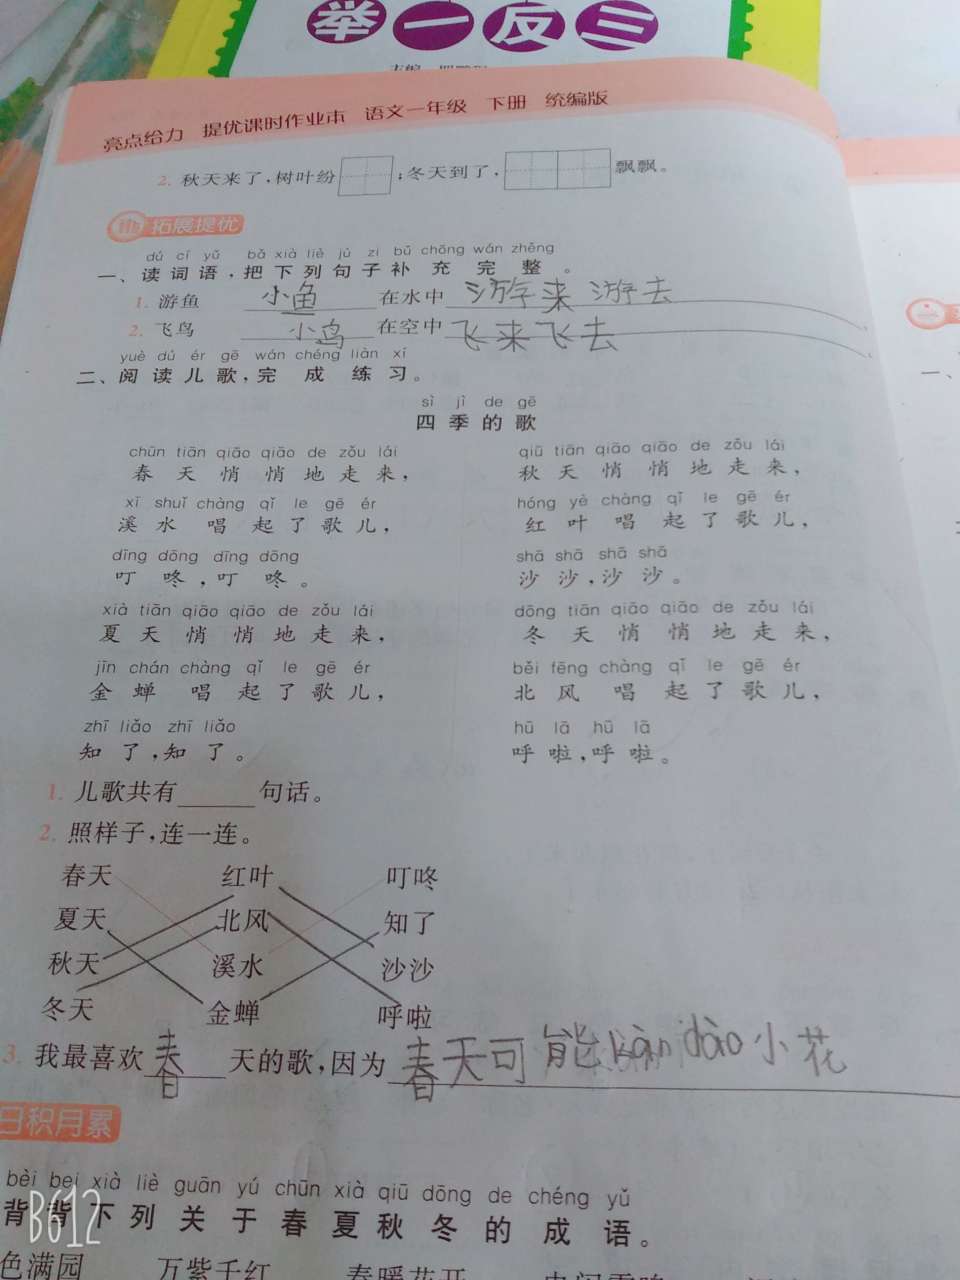 举一反三
亮点给力 提优课时作业本 语文一年级 下册 统编版
2. 秋天来了,树叶纷 ;冬天到了, 飘飘。
拓展提优
dú cí yǔ bǎ xià liè jù zi bǔ chōng wán zhěng
一、读词语,把下列句子补充完整。
1. 游鱼 小鱼 在水中 游来游去
2. 飞鸟 小鸟 在空中 飞来飞去
yuè dú ér gē wán chéng liàn xí
二、阅读儿歌,完成练习。
sì jì de gē
四季的歌
chūn tiān qiāo qiāo de zǒu lái
春天悄悄地走来,
xī shuǐ chàng qǐ le gē ér
溪水唱起了歌儿,
dīng dōng dīng dōng
叮咚,叮咚。
xià tiān qiāo qiāo de zǒu lái
夏天悄悄地走来,
jīn chán chàng qǐ le gē ér
金蝉唱起了歌儿,
zhī liǎo zhī liǎo
知了,知了。
qiū tiān qiāo qiāo de zǒu lái
秋天悄悄地走来,
hóng yè chàng qǐ le gē ér
红叶唱起了歌儿,
shā shā shā shā
沙沙,沙沙。
dōng tiān qiāo qiāo de zǒu lái
冬天悄悄地走来,
běi fēng chàng qǐ le gē ér
北风唱起了歌儿,
hū lā hū lā
呼啦,呼啦。
1. 儿歌共有 句话。
2. 照样子,连一连。
春天 红叶 叮咚
夏天 北风 知了
秋天 溪水 沙沙
冬天 金蝉 呼啦
3. 我最喜欢 春 天的歌,因为 春天可能kàn dào小花
日积月累
bèi bei xià liè guān yú chūn xià qiū dōng de chéng yǔ
背背下列关于春夏秋冬的成语。
色满园 万紫千红 春暖花开
B612